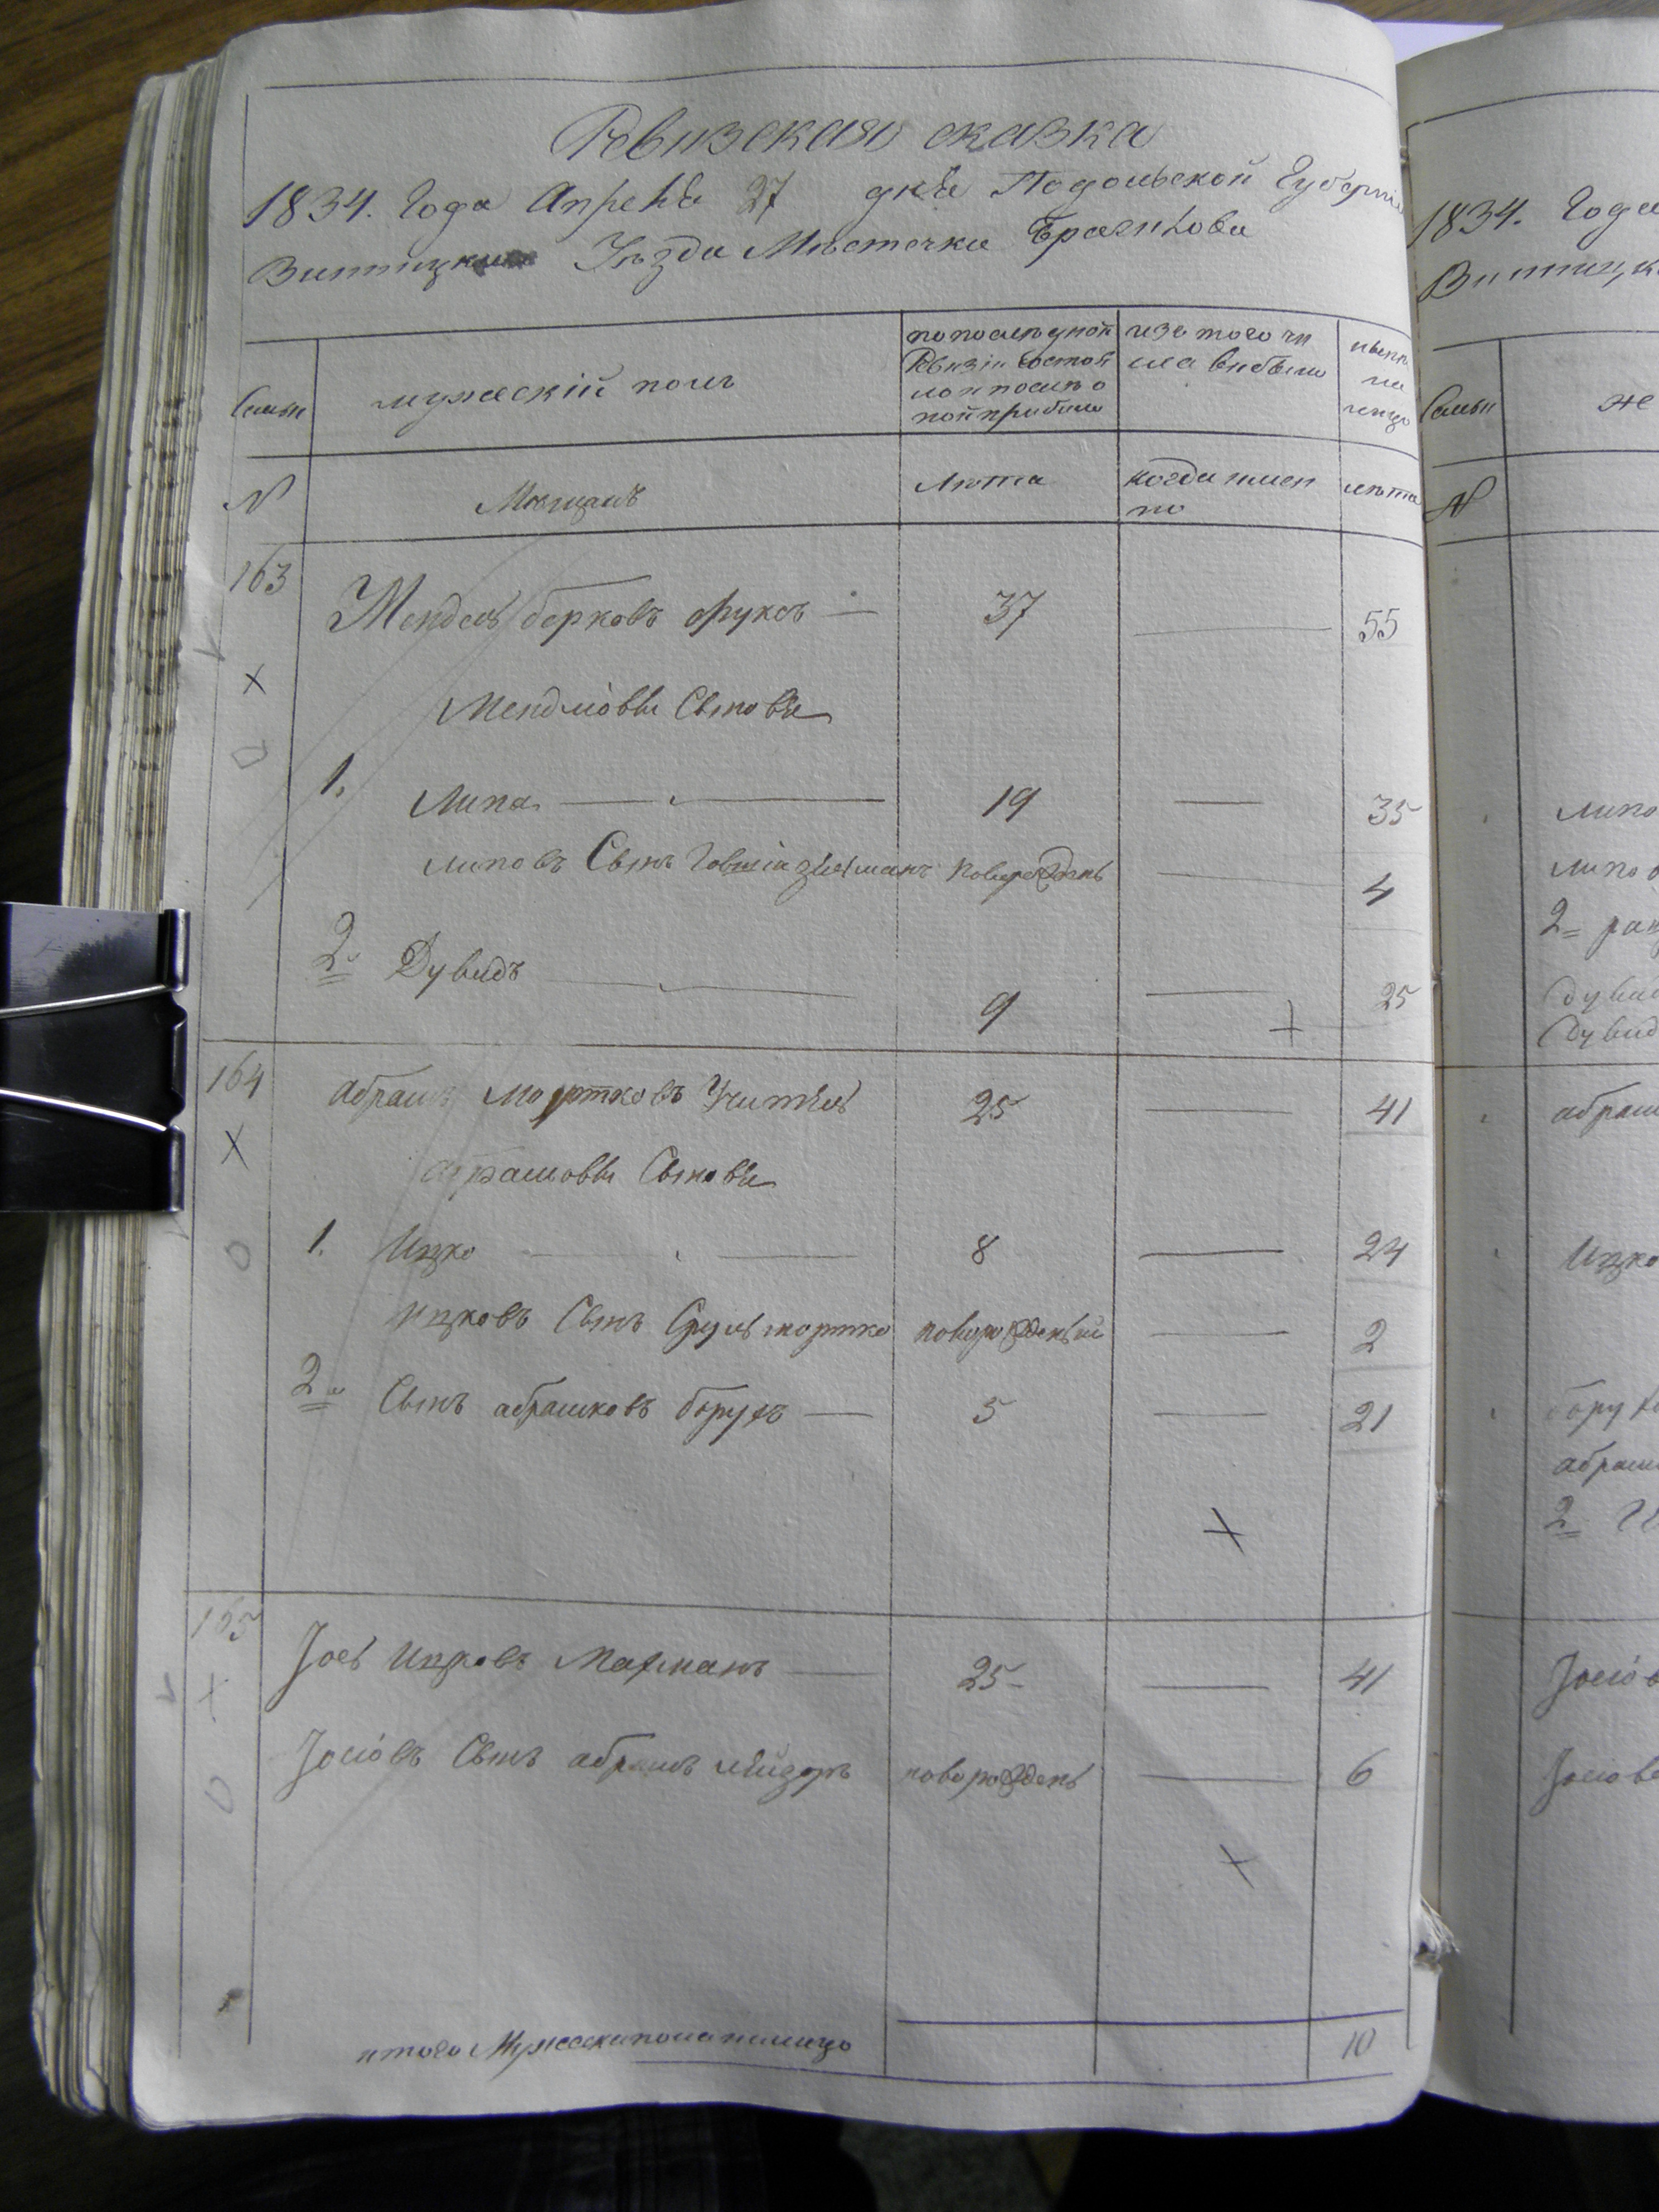 Ревизская сказка
1834. Года Апреля 27 дня Подольской Губерніи
Винницкаго Уѣзда Мѣстечка Браилова
Семьи
мужескій полъ
по послѣдной
Ревизіи состоя
ло и послѣ о
ной прибыло
изъ того чи
сла выбыло
нынѣ
на
лицо
№
Мѣщанъ
Лѣта
когда имен
но
лѣта
163
Мендель берковъ фуксъ — 37 — 55
Мендлiовы Сыновья
1. Липа — 19 — 35
липовъ Сынъ Говшiа зельманъ новорожденъ — 4
2й Дувидъ — 9 — 25
164
абрамъ Мортковъ Учитель 25 — 41
абрамовы Сыновья
1. Ицко — 8 — 24
Ицковъ Сынъ Сруль мортко новорожденый — 2
2й Сынъ абрамковъ борухъ — 5 — 21
165
Іось Ицковъ Нахманъ — 25 — 41
Іосіовъ Сынъ абрамъ лейзоръ новорожденъ — 6
итого Мужеска пола налицо 10
1834. Года
Винницк
Семьи
же
№
липо
липов
2
дувид
Дувид
абрам
Ицко
борух
абрам
2
Іосіов
Іосіов